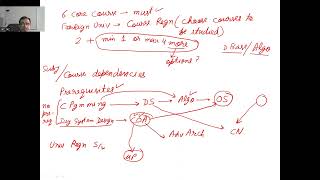 6 core course → must ✓
Foreign Univ → Course Regn (choose courses to be studied)
2 + min 1 or max 4 more
options?
2 Base/Algo
Subj/
Course dependencies
Prerequisites
no pre req
C Pgmming → DS → Algo → OS
Dig System Design → COA
Adv Arch
CN
Univ Regn S/w
μP